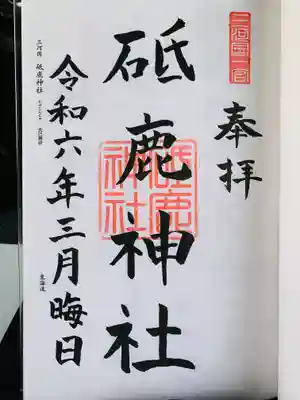 三河国一宮
奉拝
砥鹿神社
砥鹿神社
令和六年三月晦日
三河国 砥鹿神社
東海道